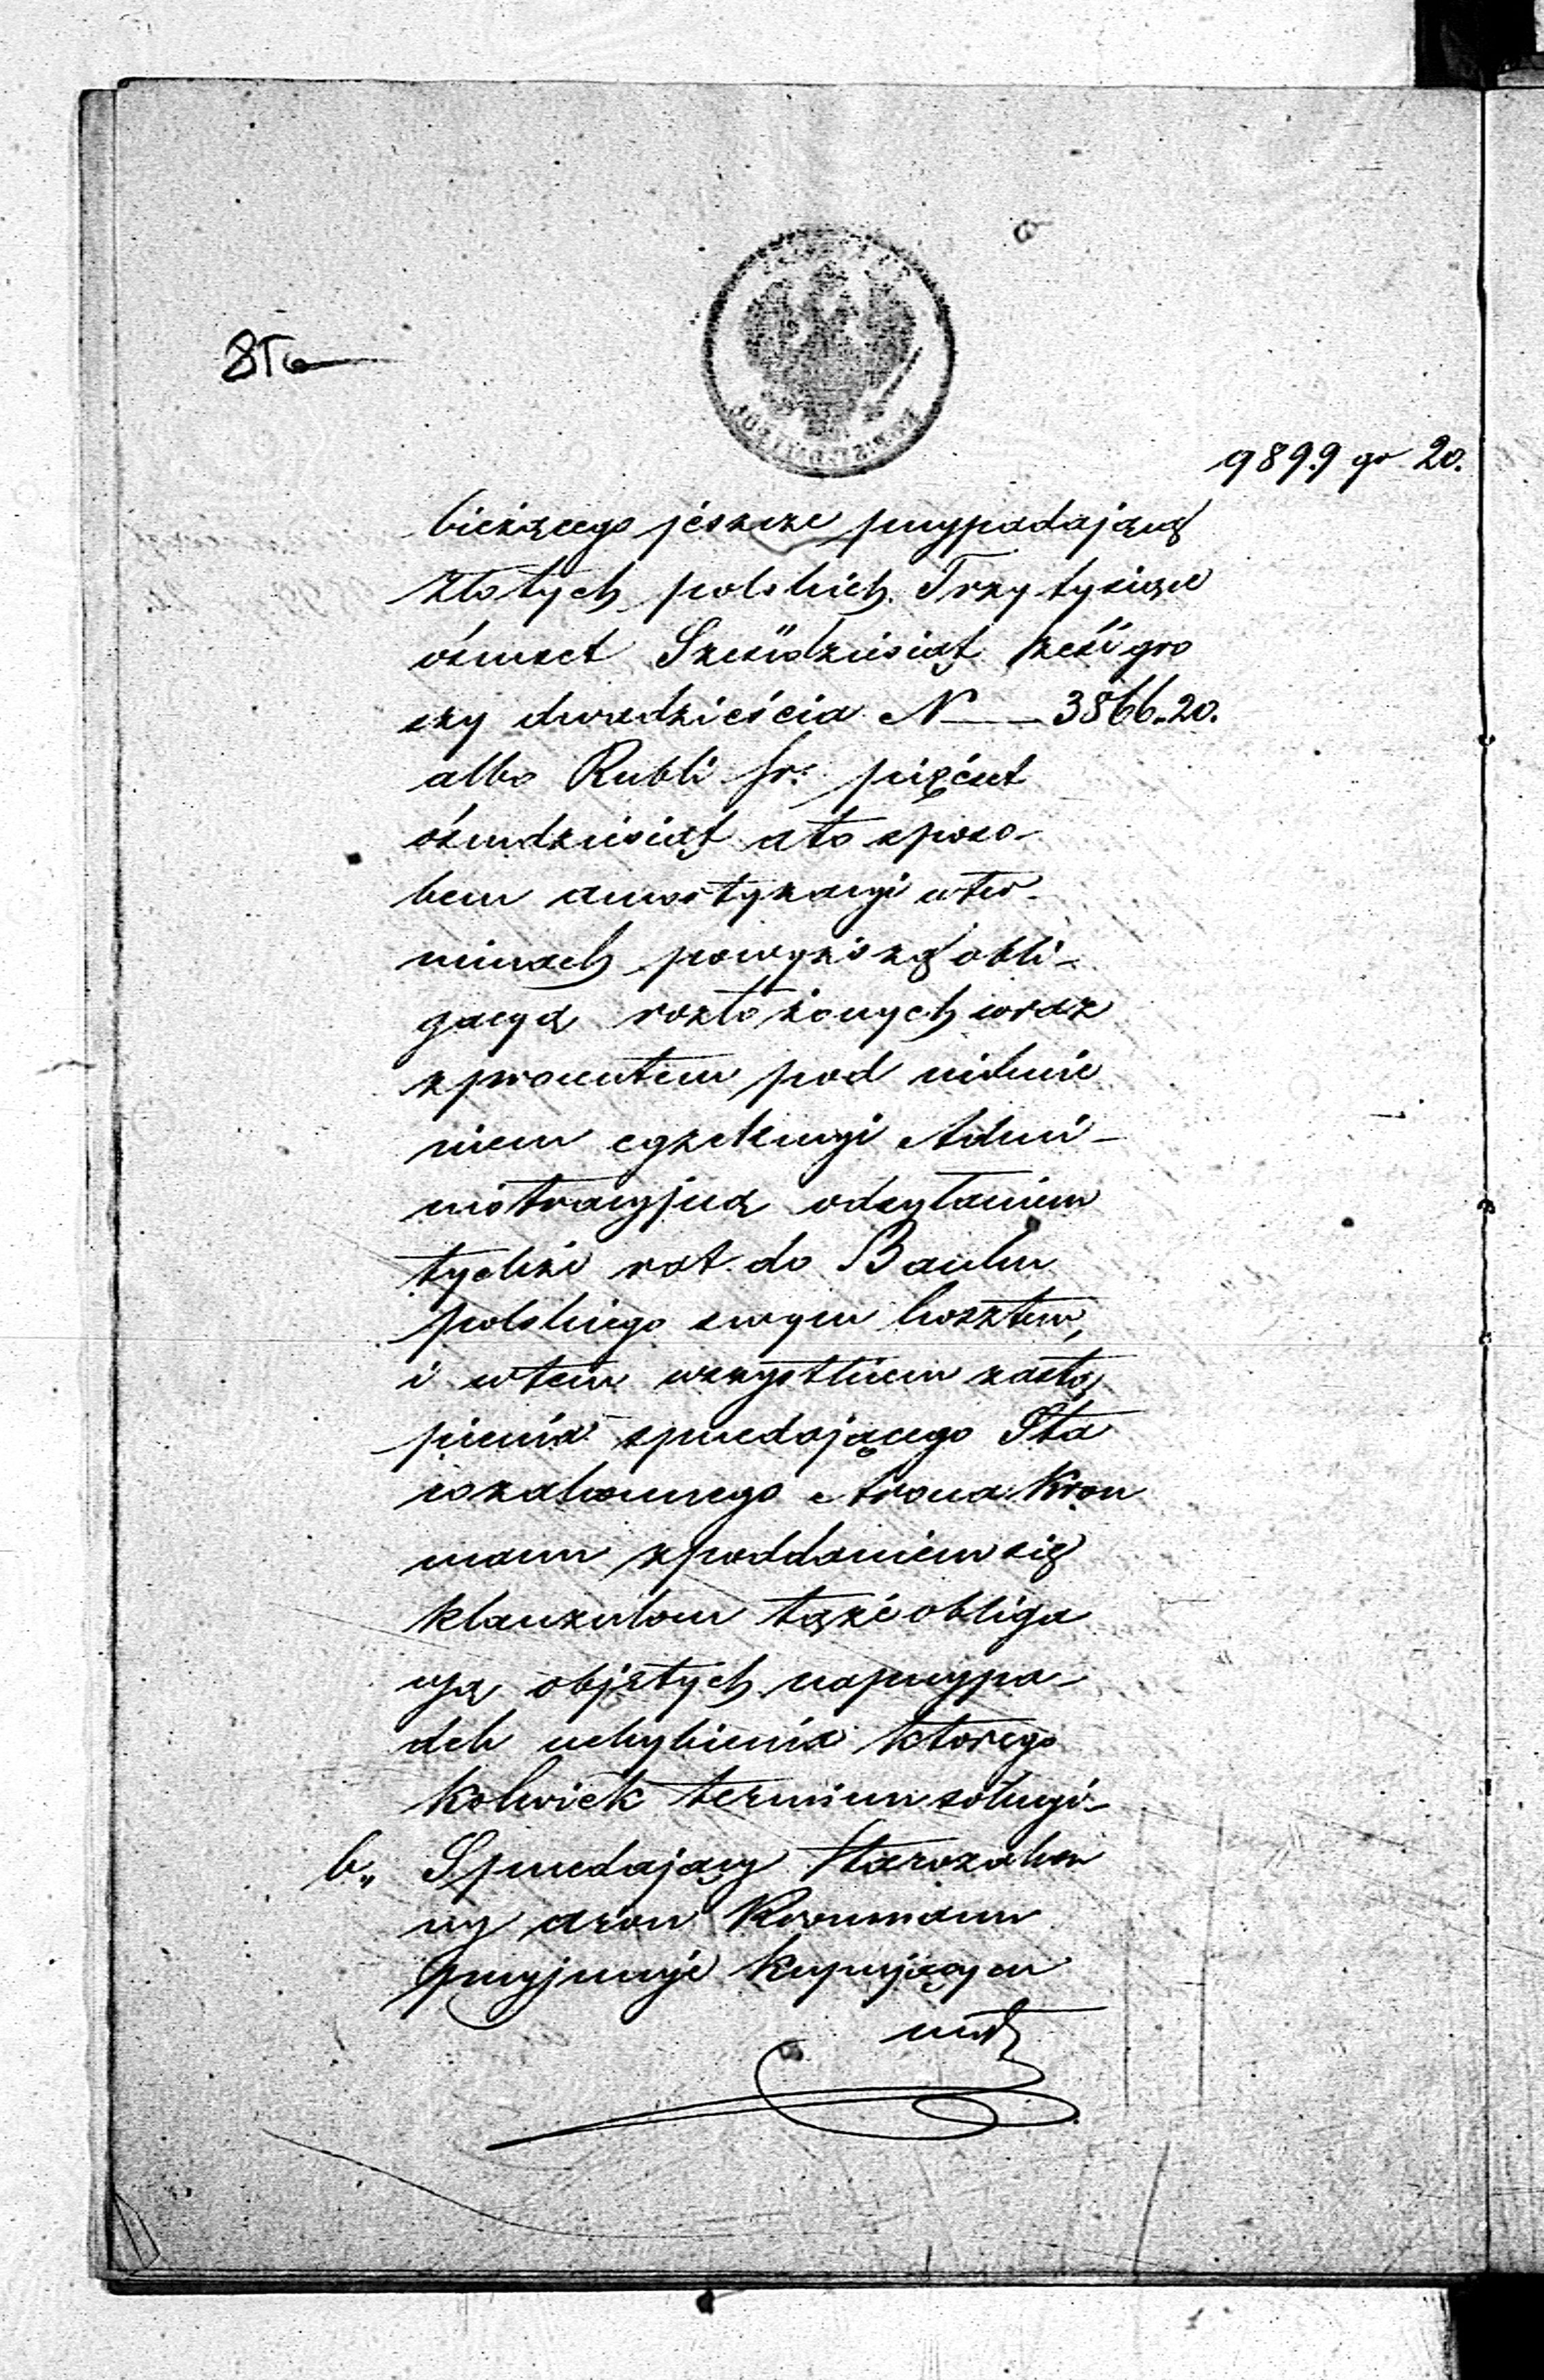 9899 gr 20.
bieżącego jeszcze przypadającą
złotych polskich Trzy tysiące
ośmset Sześćdziesiąt sześć gro
szy dwadzieścia N — 3866.20.
albo Rubli sr: pięćset
ośmdziesiąt a to sposo-
bem amortyzacyi w ter-
minach powyższą obli-
gacyą rozłożonych wraz
z procentem pod uniknie
niem egzekucyi Admi-
nistracyjną odsyłaniem
tychże rat do Banku
polskiego swym kosztem,
i w tem wszystkiem zastą
pienia sprzedającego Sta
rozakonnego Arona Kron
mann z poddaniem się
klauzulom tąże obliga
cyą objętych na przypa-
dek uchybienia którego
kolwiek terminu solucyi-
b„ Sprzedający Starozakon
ny Aron Kronmann
przyjmuje kupującym